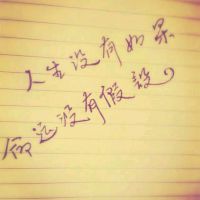 人生没有如果
命运没有假设。